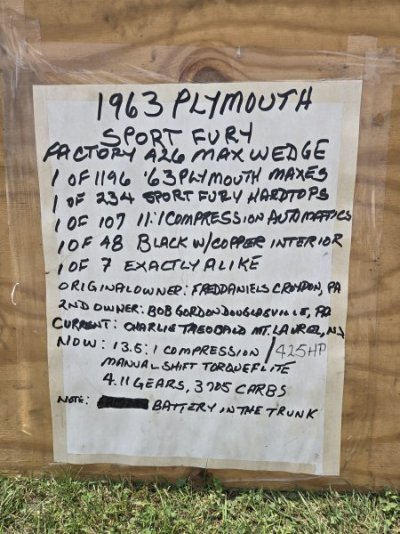 1963 PLYMOUTH
SPORT FURY
FACTORY 426 MAX WEDGE
1 OF 1196 '63 PLYMOUTH MAXES
1 OF 234 SPORT FURY HARDTOPS
1 OF 107 11:1 COMPRESSION AUTOMATICS
1 OF 48 BLACK W/COPPER INTERIOR
1 OF 7 EXACTLY ALIKE
ORIGINAL OWNER: FRED DANIELS CROYDON, PA
2ND OWNER: BOB GORDON DOUGLASVILLE, PA
CURRENT: CHARLIE THEOBALD MT. LAUREL, NJ
NOW: 13.5:1 COMPRESSION / 425HP
MANUAL SHIFT TORQUEFLITE
4.11 GEARS, 3705 CARBS
NOTE: BATTERY IN THE TRUNK